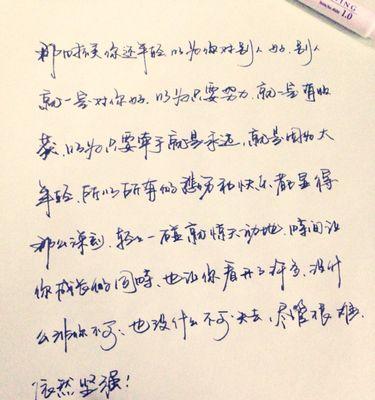 1.0
那时候你还年轻,以为你对别人好,别人
就一定对你好,以为只要努力,就一定有收
获,以为只要牵手就是永远,就是因为太
年轻,所以所有的悲伤和快乐都显得
那么深刻,轻轻一碰就惊天动地。时间让
你成长的同时,也让你看开了许多,没什
么非你不可,也没什么不可失去,尽管很难,
依然坚强!